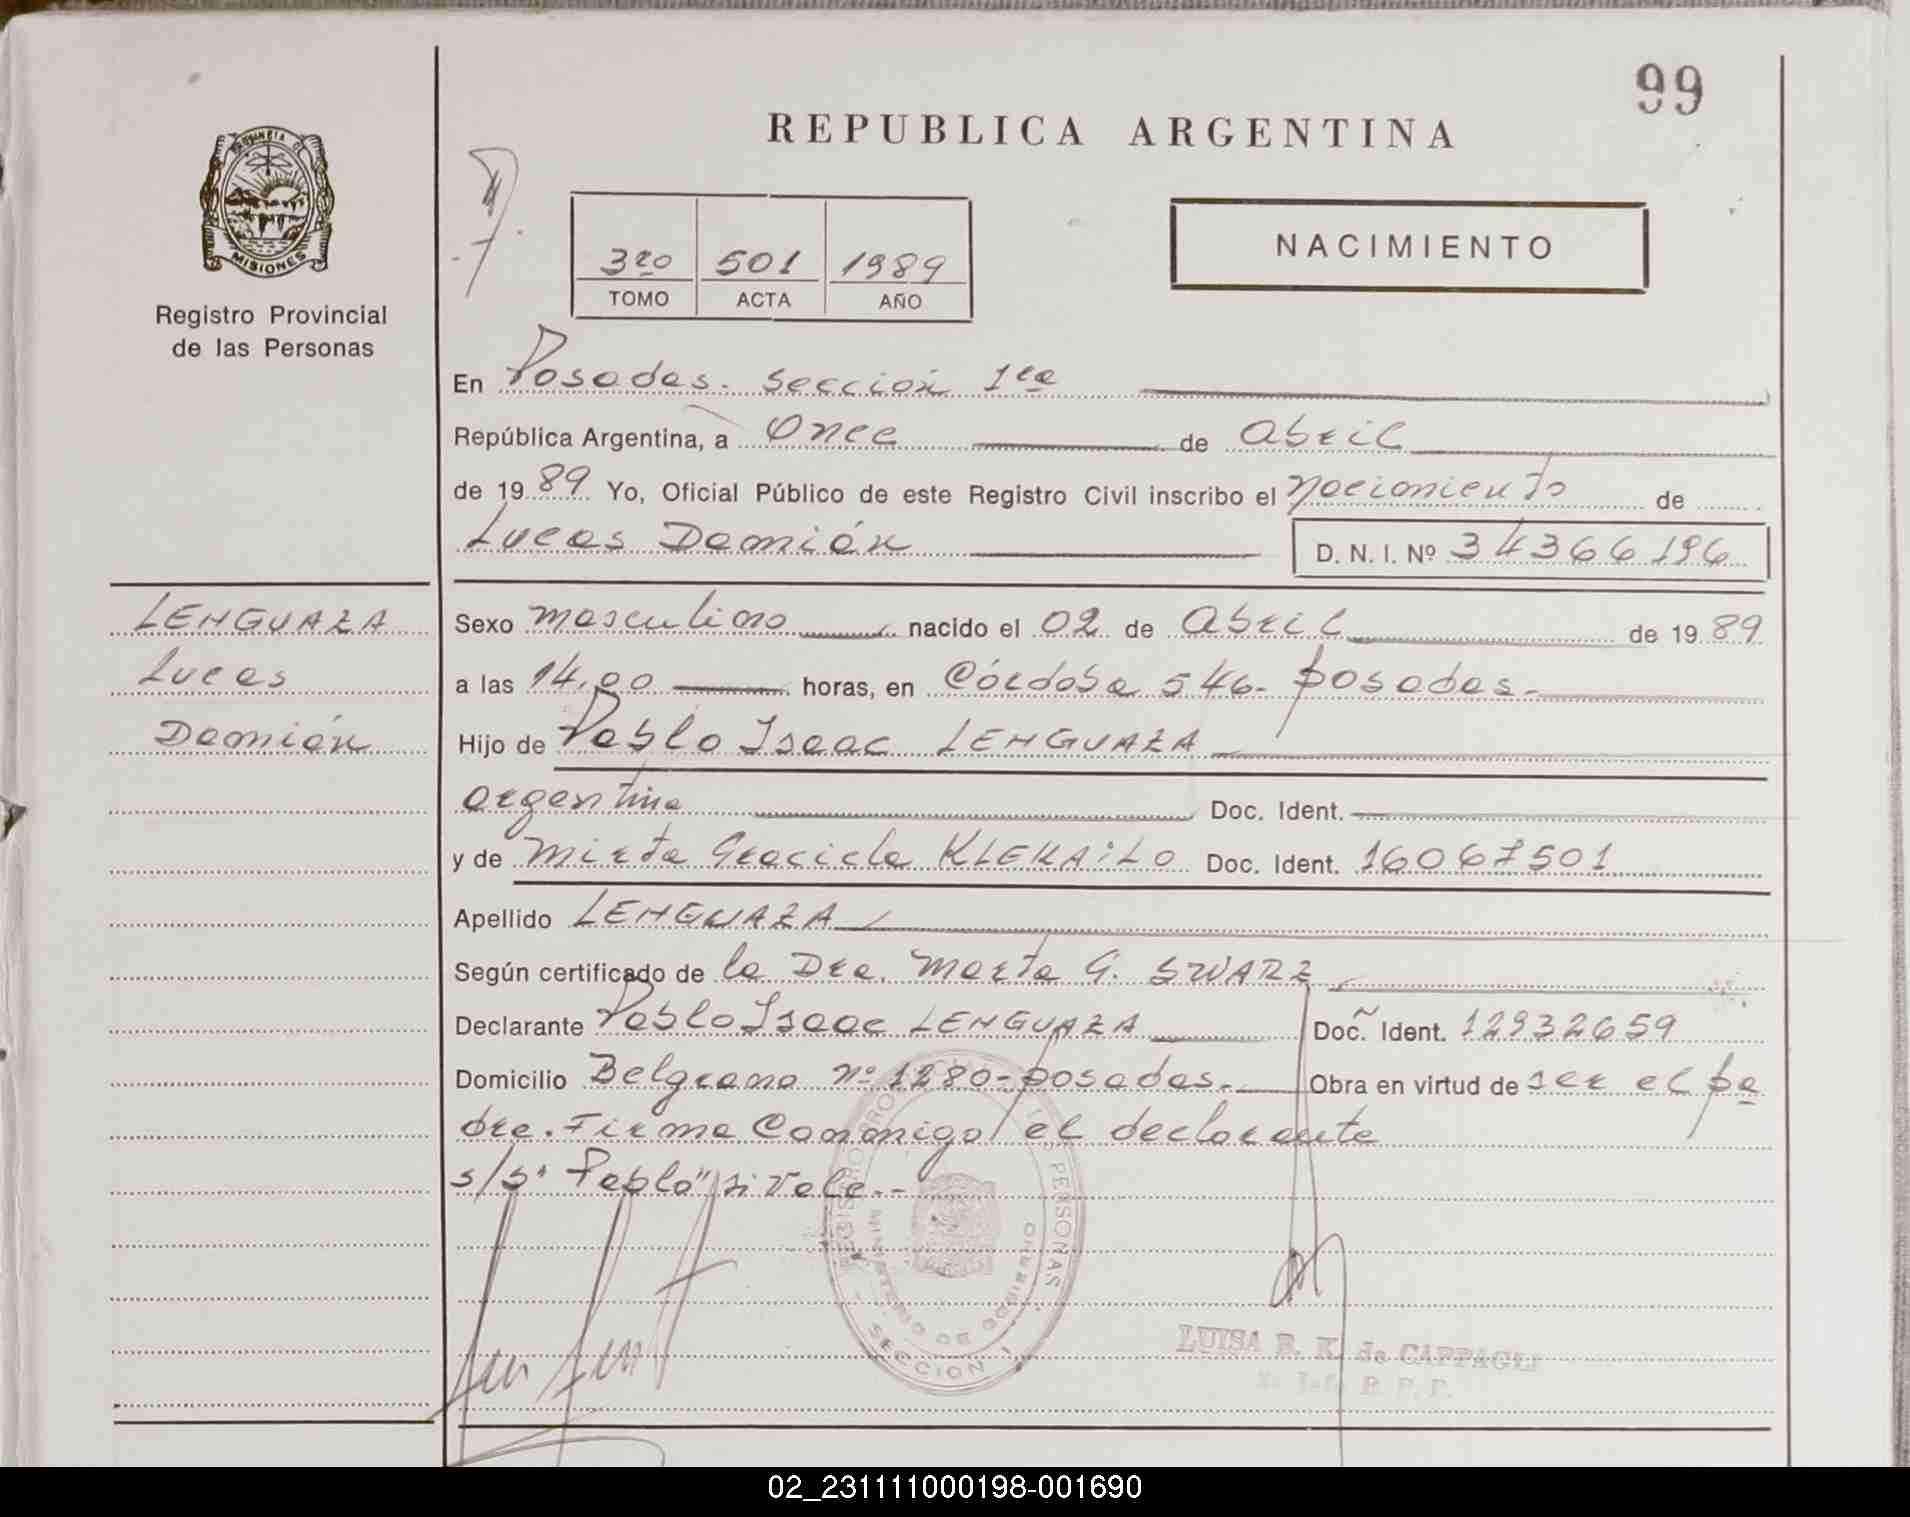 99
REPUBLICA ARGENTINA
PROVINCIA DE
MISIONES
Registro Provincial
de las Personas
3ro 501 1989
TOMO ACTA AÑO
NACIMIENTO
En Posadas. Sección 1ra
República Argentina, a Once de Abril
de 1989 Yo, Oficial Público de este Registro Civil inscribo el nacimiento de
Lucas Damián D. N. I. Nº 34366196
LENGUAZA
Lucas
Damián
Sexo masculino nacido el 02 de Abril de 1989
a las 14,00 horas, en Córdoba 546- posadas-
Hijo de Pablo Isaac LENGUAZA
argentina Doc. Ident.
y de Mirta Graciela KLEKAiLO Doc. Ident. 16067501
Apellido LENGUAZA
Según certificado de la Dra. Marta G. SWARZ
Declarante Pablo Isaac LENGUAZA Doc. Ident. 12932659
Domicilio Belgrano nº 1280- posadas.- Obra en virtud de ser el pa
dre. Firma Conmigo el declarante
s/b "Pablo" si Vale.-
REGISTRO PROVINCIAL DE LAS PERSONAS
MINISTERIO DE GOBIERNO
SECCION 1
LUISA R. K. de CAPPAGLI
02_231111000198-001690